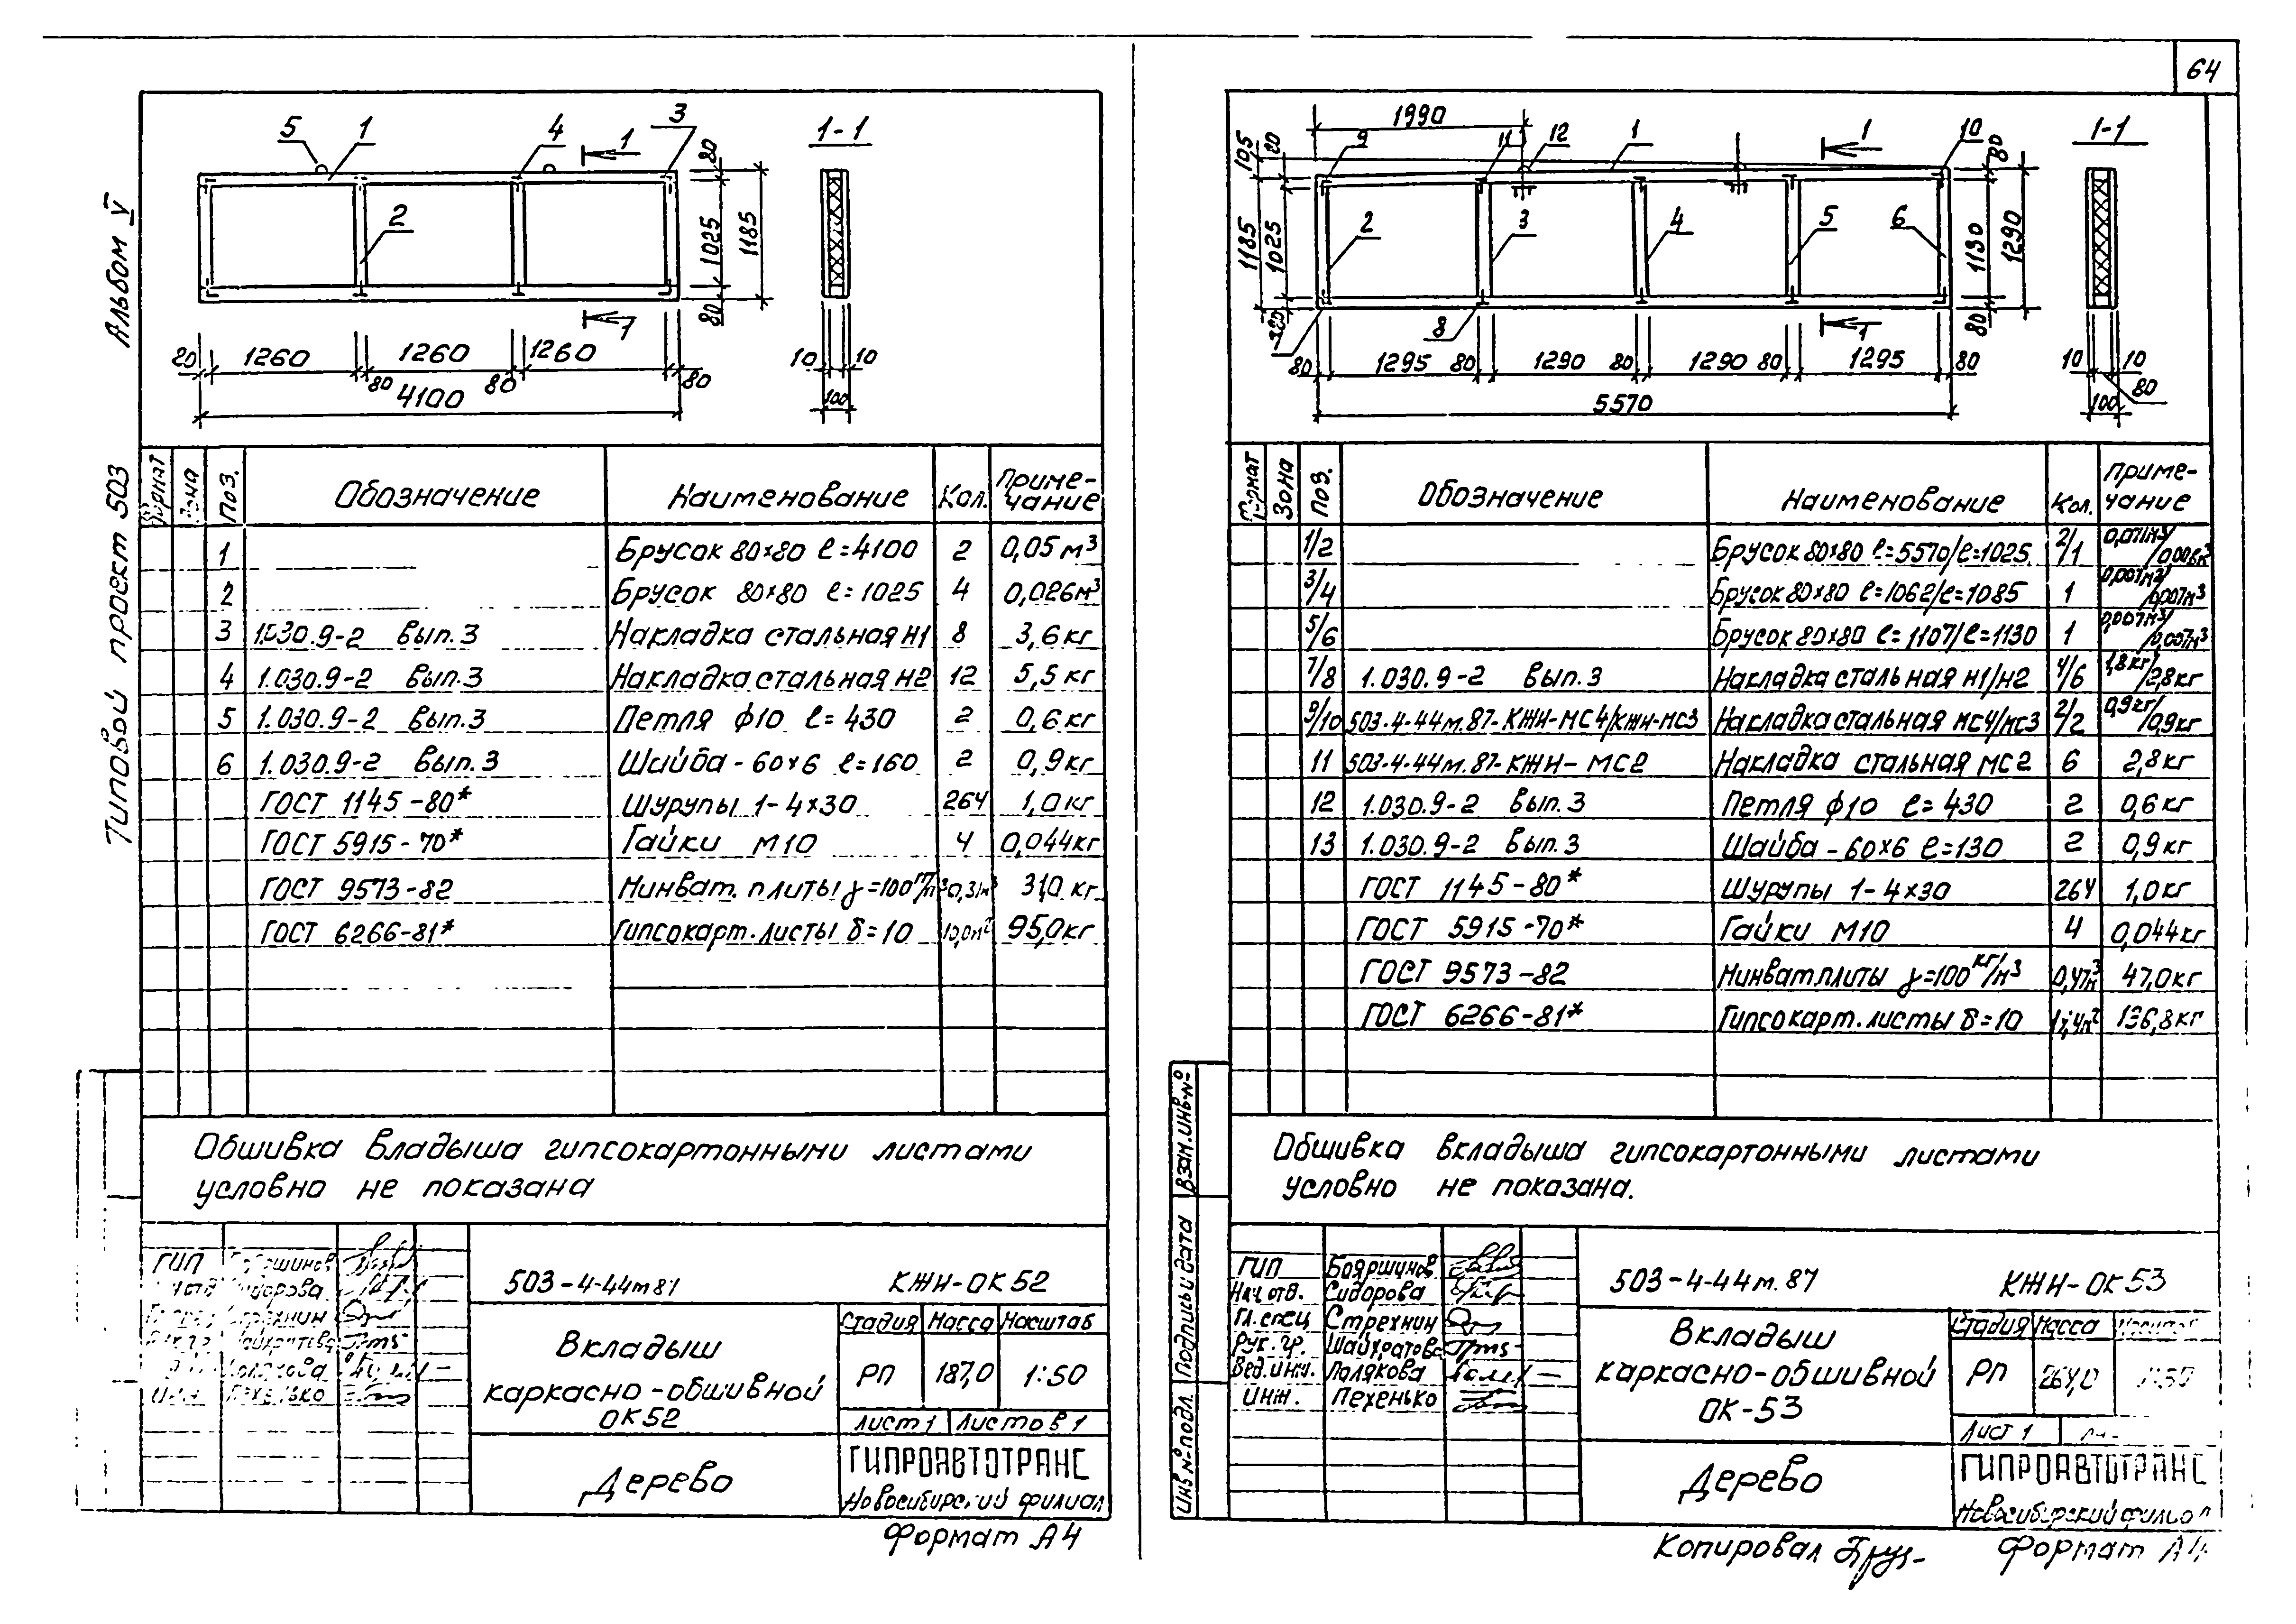 64
Альбом V
Типовой проект 503
5 1 4 1 3 1-1
2
80
1025 1185
80
1
20 1260 1260 1260
80 80 80
4100
10 10
100
Формат Зона Поз. Обозначение Наименование Кол. Примечание
1 Брусок 80×80 ℓ=4100 2 0,05 м³
2 Брусок 80×80 ℓ=1025 4 0,026м³
3 1.030.9-2 Вып.3 Накладка стальная Н1 8 3,6 кг
4 1.030.9-2 Вып.3 Накладка стальная Н2 12 5,5 кг
5 1.030.9-2 Вып.3 Петля ф10 ℓ=430 2 0,6 кг
6 1.030.9-2 Вып.3 Шайба -60×6 ℓ=160 2 0,9 кг
ГОСТ 1145-80* Шурупы 1-4×30 264 1,0 кг
ГОСТ 5915-70* Гайки М10 4 0,044кг
ГОСТ 9573-82 Минват. плиты γ=100 0,31м³ 31,0 кг
ГОСТ 6266-81* Гипсокарт. листы δ=10 10,0м² 95,0кг
Обшивка вкладыша гипсокартонными листами
условно не показана
ГИП
Сидорова
Стрехнин
Полякова
Инж. Пехенько
503-4-44м87 КЖИ-ОК52
Вкладыш
каркасно-обшивной
ОК52
Стадия Масса Масштаб
РП 187,0 1:50
Лист 1 Листов 1
Дерево
ГИПРОАВТОТРАНС
Новосибирский филиал
Формат А4
1990
9 11 12 1 1 10 1-1
105 20 80
1185 1025
2 3 4 5 6
1130 1290
80
7 8 1
80 1295 80 1290 80 1290 80 1295 80
5570
10 10
80
100
Формат Зона Поз. Обозначение Наименование Кол. Примечание
1/2 Брусок 80×80 ℓ=5570/ℓ=1025 2/1 0,071м³/0,006м³
3/4 Брусок 80×80 ℓ=1062/ℓ=1085 1 0,007м³/0,007м³
5/6 Брусок 80×80 ℓ=1107/ℓ=1130 1 0,007м³/0,007м³
7/8 1.030.9-2 Вып.3 Накладка стальная Н1/Н2 4/6 1,8кг/2,8кг
9/10 503-4-44м.87-КЖИ-МС4/КЖИ-МС3 Накладка стальная МС4/МС3 2/2 0,9кг/0,9кг
11 503-4-44м.87-КЖИ-МС2 Накладка стальная МС2 6 2,8кг
12 1.030.9-2 Вып.3 Петля ф10 ℓ=430 2 0,6 кг
13 1.030.9-2 Вып.3 Шайба -60×6 ℓ=130 2 0,9 кг
ГОСТ 1145-80* Шурупы 1-4×30 264 1,0кг
ГОСТ 5915-70* Гайки М10 4 0,044кг
ГОСТ 9573-82 Минват.плиты γ=100кг/м³ 0,47м³ 47,0кг
ГОСТ 6266-81* Гипсокарт.листы δ=10 136,8кг
Обшивка вкладыша гипсокартонными листами
условно не показана.
Взам.инв.№
Подпись и дата
Инв.№подл.
ГИП Бояршинов
Нач.отд. Сидорова
Гл.спец Стрехнин
Рук.гр. Шайхратова
Вед.инж. Полякова
Инж. Пехенько
503-4-44м.87 КЖИ-ОК53
Вкладыш
каркасно-обшивной
ОК-53
Стадия Масса
РП 264,0 1:50
Лист 1
Дерево
ГИПРОАВТОТРАНС
Новосибирский филиал
Копировал Формат А4